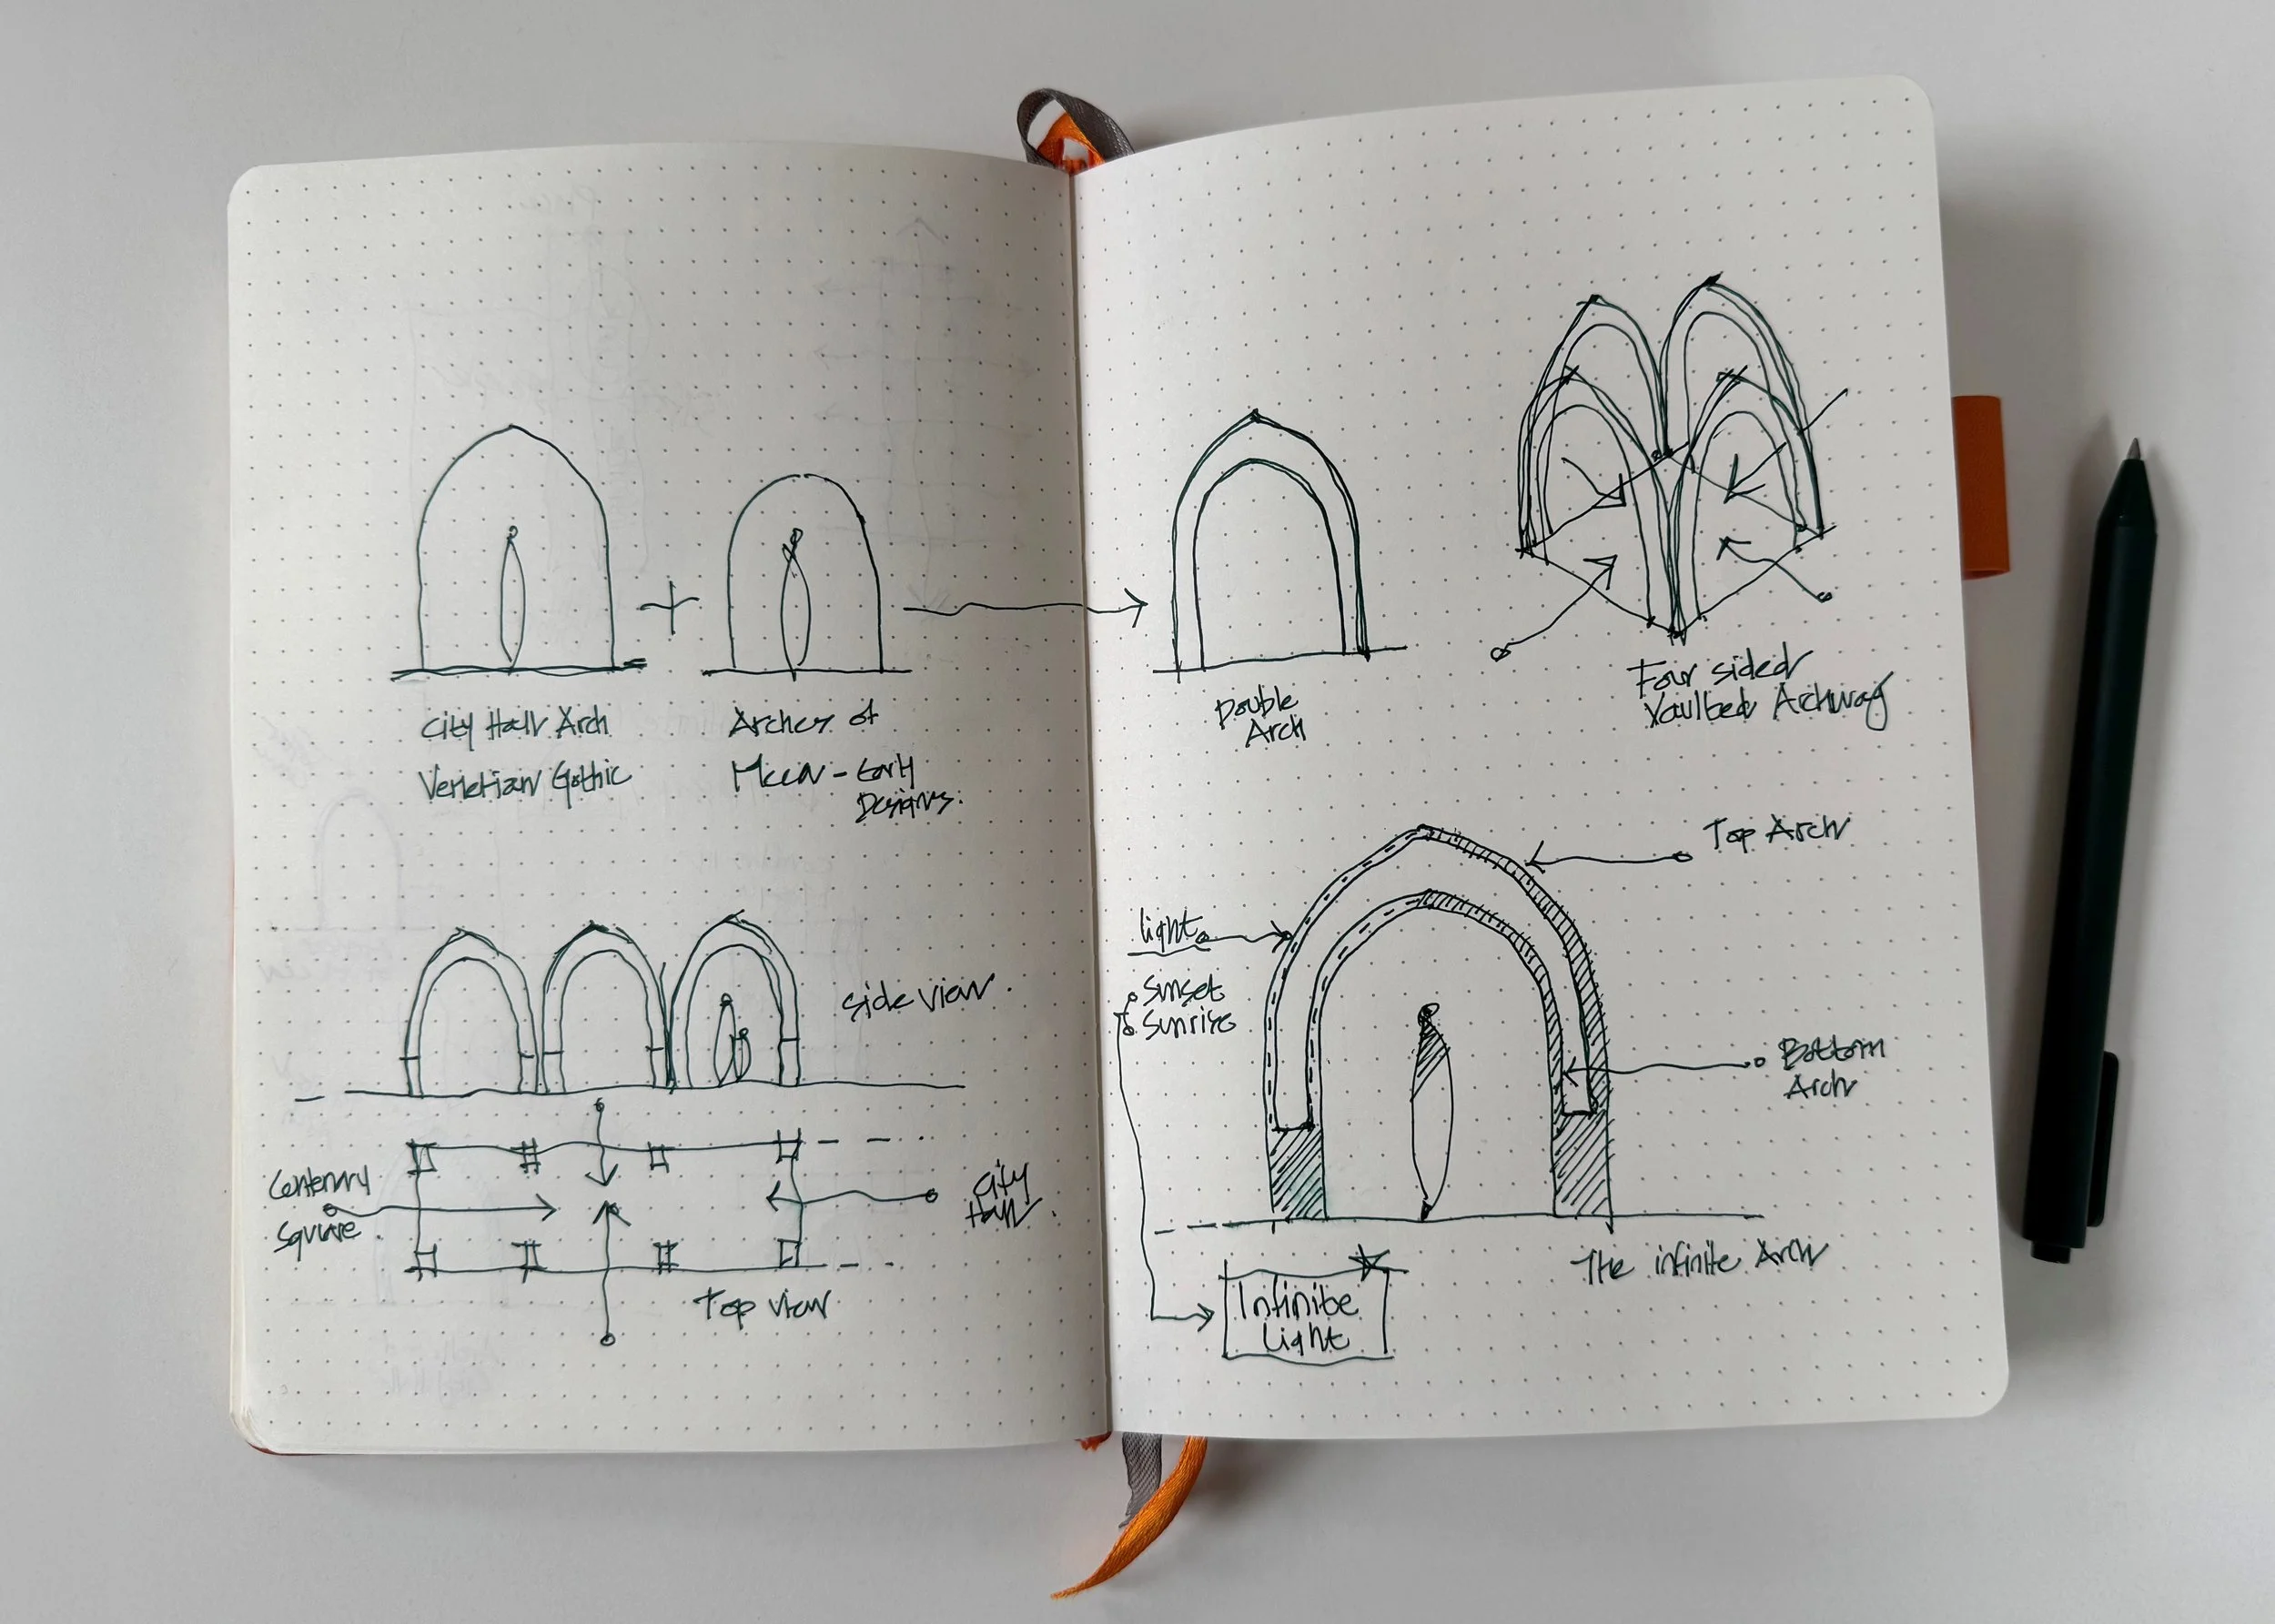 City Hall Arch
Venetian Gothic
Arches of
Mecca - Early
Designs.
Side view.
Centenary
Square.
City
Hall.
Top view
Double
Arch
Four sided
Vaulted Archway
Top Arch
light
Sunset
Sunrise
Bottom
Arch
The infinite Arch
Infinite
Light